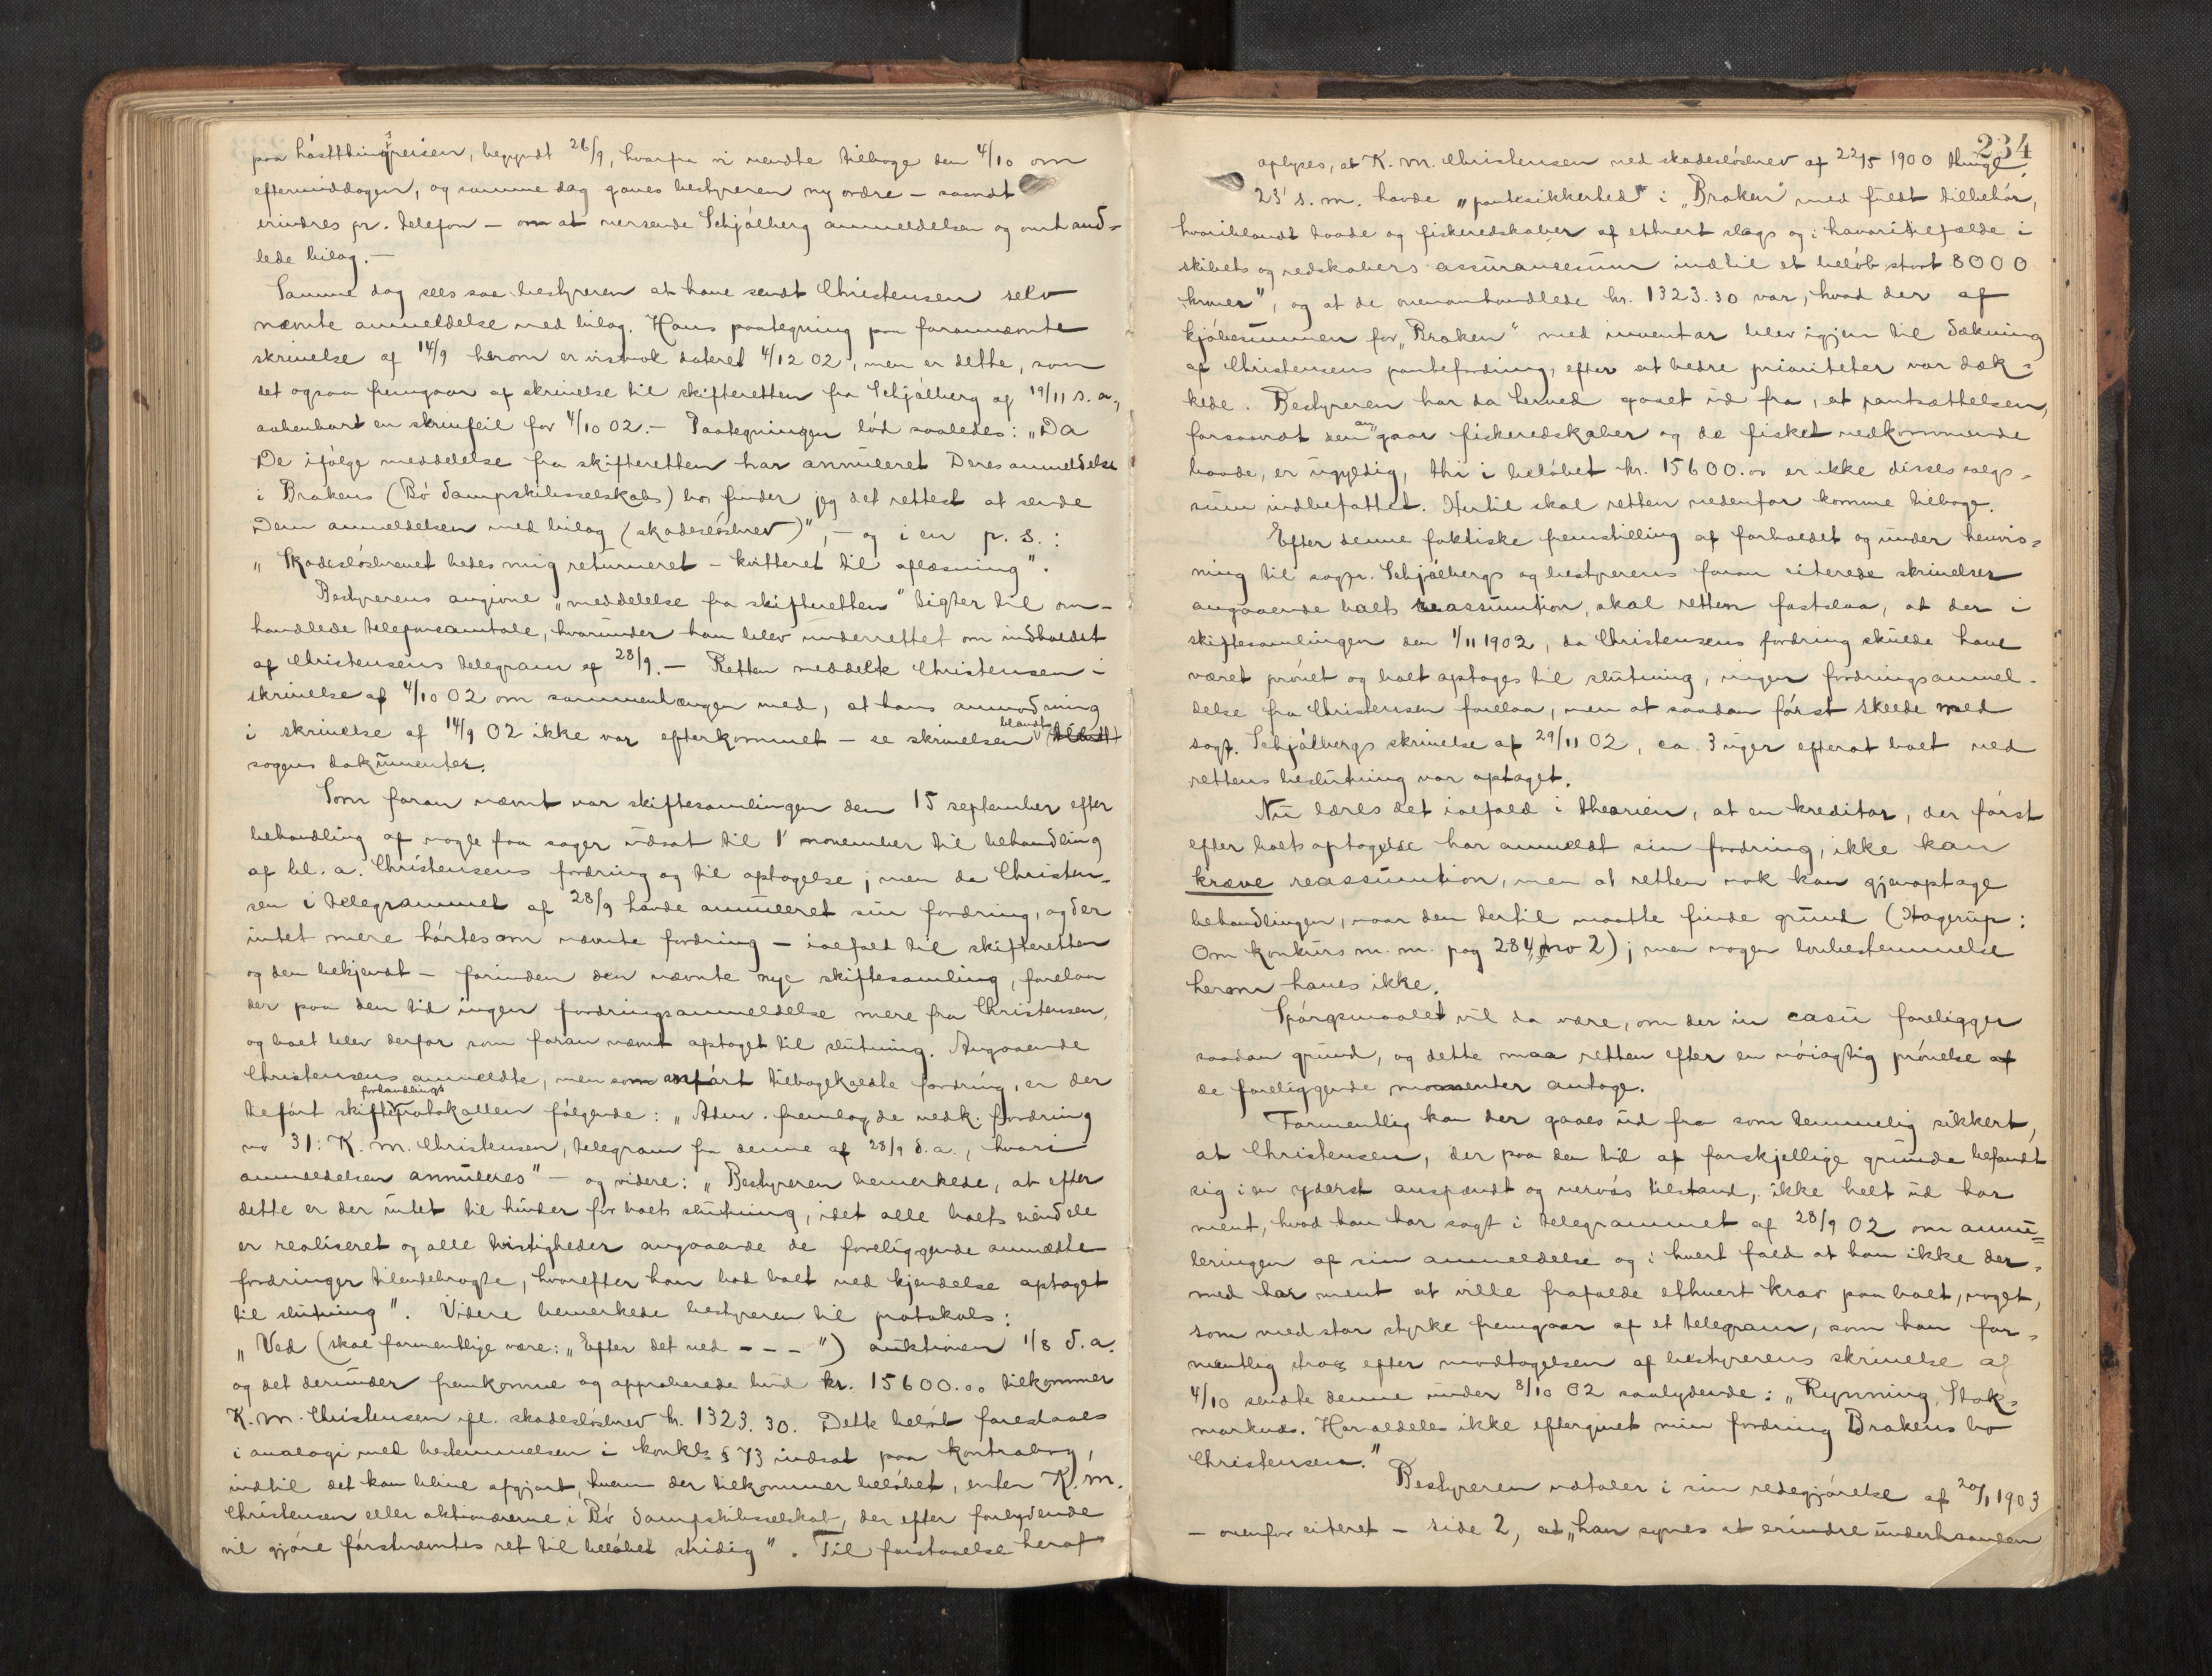 paa hösttingsreisen, begyndt 26/9, hvorfra vi vendte tilbage den 4/10 om
eftermiddagen, og samme dag gaves bestyreren ny ordre – saavidt
erindres pr. telefon – om at versende Schjölberg anmeldelsen og omhand-
lede bilag. –
Samme dag sees saa bestyreren at have sendt Christensen selv
nævnte anmeldelse med bilag. Hans paategning paa forannævnte
skrivelse af 14/9 herom er vistnok dateret 4/12 02, men er dette, som
det ogsaa fremgaar af skrivelse til skifteretten fra Schjölberg af 19/11 s. a.,
aabenbart en skrivfeil for 4/10 02. – Paategningen löd saaledes: „Da
De ifölge meddelelse fra skifteretten har annuleret Deres anmeldelse
i Brakens (Bö Dampskibsselskabs) bo finder jeg det rettest at sende
Dem anmeldelsen med bilag (skadeslösbrev)", – og i en p. s.:
„Skadeslösbrevet bedes mig returneret – kvitteret til aflæsning".
Bestyrerens angivne „meddelelse fra skifteretten" sigter til om-
handlede telefonsamtale, hvorunder han blev underrettet om indholdet
af Christensens telegram af 28/9. – Retten meddelte Christensen i
skrivelse af 4/10 02 om sammenhængen med, at hans anmodning
i skrivelse af 14/9 02 ikke var efterkommet – se skrivelsen blandt
sagens dokumenter.
Som foran nævnt var skiftesamlingen den 15 september efter
behandling af nogle faa sager udsat til 1' november til behandling
af bl. a. Christensens fordring og til optagelse; men da Christen-
sen i telegrammet af 28/9 havde annulleret sin fordring, og der
intet mere hörtes om nævnte fordring – ialfald til skifteretten
og den bekjendt – forinden den nævnte nye skiftesamling, forelaa
der paa den tid ingen fordringsanmeldelse mere fra Christensen,
og boet blev derfor som foran nævnt optaget til slutning. Angaaende
Christensens anmeldte, men som anfört tilbagekaldte fordring, er der
tilfört skifteforhandlingsprotokollen fölgende: „Adm. fremlagde vedk. fordring
no 31: K. M. Christensen, telegram fra denne af 28/9 d. a., hvori
anmeldelsen annuleres" – og videre: „Bestyreren bemerkede, at efter
dette er der intet til hinder for boets slutning, idet alle boets eiendele
er realiseret og alle tvistigheder angaaende de foreliggende anmeldte
fordringer tilendebragte, hvorefter han bad boet ved kjendelse optaget
til slutning". Videre bemerkede bestyreren til protokols:
„Ved (skal formentlige være: „Efter det ved – – – ") auktionen 1/8 d. a.
og det derunder fremkomne og approberede bud kr. 15600.00 tilkommer
K. M. Christensen ifl. skadeslösbrev kr. 1323.30. Dette belöb foreslaaes
i analogi med bestemmelsen i konkl. § 73 indsat paa kontrabog,
indtil det kan blive afgjort, hvem der tilkommer belöbet, enten K. M.
Christensen eller aktionærerne i Bö Dampskibsselskab, der efter forlydende
vil gjöre förstnævntes ret til belöbet stridig". Til forstaaelse heraf
234
oplyses, at K. M. Christensen ved skadeslösbrev af 22/5 1900 thingl.
23' s. m. havde „pantesikkerhed" i „Braken" med fuldt tilbehör,
hvoriblandt baade og fiskeredskaber af ethvert slags og i havaritilfælde i
skibets og redskabers assurancesum indtil et belöb stort 8000
kroner", og at de ovenomhandlede kr. 1323.30 var, hvad der af
kjöbesummen for „Braken" med inventar blev igjen til dækning
af Christensens pantefordring, efter at bedre prioriteter var dæk-
kede. Bestyreren har da herved gaaet ud fra, at pantsættelsen,
forsaavidt den angaar fiskeredskaber og de fisket vedkommende
baade, er ugyldig, thi i belöbet kr. 15600.00 er ikke disses salgs-
sum indbefattet. Hertil skal retten nedenfor komme tilbage.
Efter denne faktiske fremstilling af forholdet og under henvis-
ning til sagf. Schjölbergs og bestyrerens foran citerede skrivelser
angaaende boets reassumtion, skal retten fastslaa, at der i
skiftesamlingen den 1/11 1902, da Christensens fordring skulde have
været prövet og boet optages til slutning, ingen fordringsanmel-
delse fra Christensen forelaa, men at saadan först skede med
sagf. Schjölbergs skrivelse af 29/11 02, ca. 3 uger efterat boet ved
rettens beslutning var optaget.
Nu læres det ialfald i theorien, at en kreditor, der först
efter boets optagelse har anmeldt sin fordring, ikke kan
kræve reassumtion, men at retten nok kan gjenoptage
behandlingen, naar den dertil maatte finde grund (Hagerup:
Om Konkurs m. m. pag 284, no 2); men nogen lovbestemmelse
herom haves ikke.
Spörgsmaalet vil da være, om der in casu foreligger
saadan grund, og dette maa retten efter en nöiagtig prövelse af
de foreliggende momenter antage.
Formentlig kan der gaaes ud fra som temmelig sikkert,
at Christensen, der paa den tid af forskjellige grunde befandt
sig i en yderst anspændt og nervös tilstand, ikke helt ud har
ment, hvad han har sagt i telegrammet af 28/9 02 om annu-
leringen af sin anmeldelse og i hvert fald at han ikke der-
med har ment at ville frafalde ethvert krav paa boet, noget,
som med stor styrke fremgaar af et telegram, som han for-
mentlig strax efter modtagelsen af bestyrerens skrivelse af
4/10 sendte denne under 8/10 02 saalydende: „Rynning, Stok-
marknes. Har aldeles ikke eftergivet min fordring Brakens bo
Christensen."
Bestyreren udtaler i sin redegjörelse af 20/1 1903
– ovenfor citeret – side 2, at „han synes at erindre underhaanden